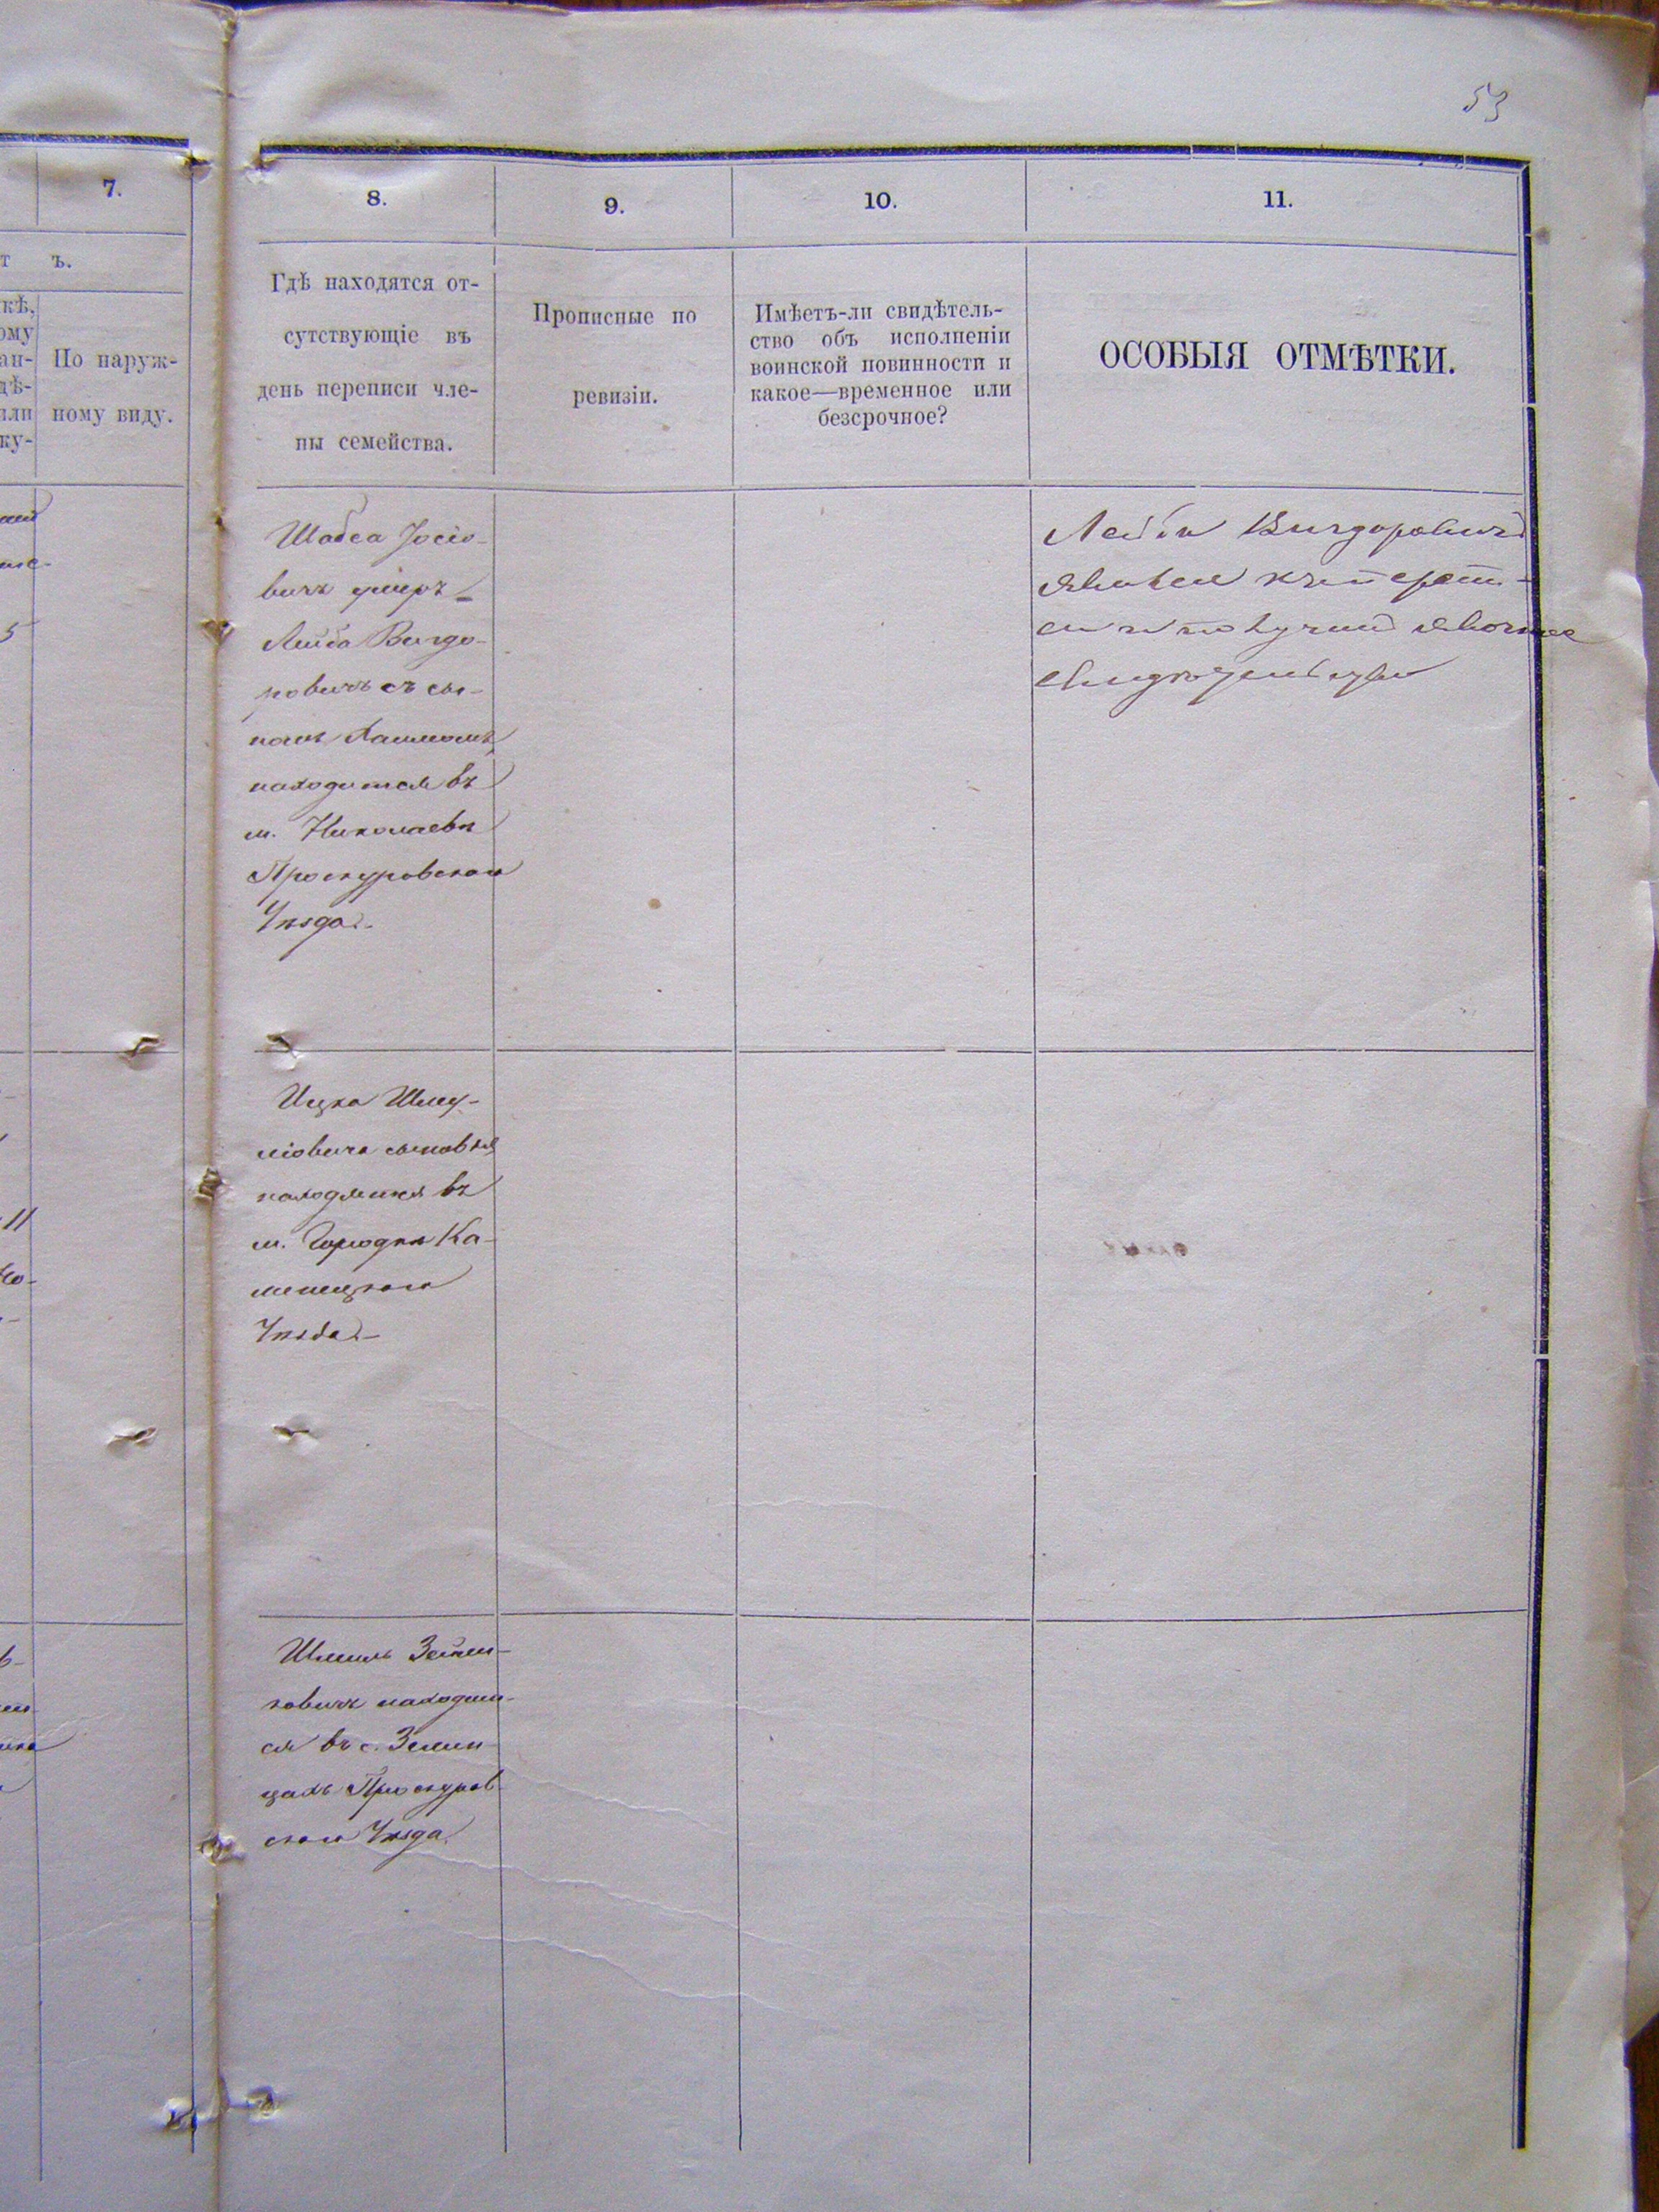 53
7.
ъ.
По наруж-
ному виду.
8.
Гдѣ находятся от-
сутствующіе въ
день переписи чле-
ны семейства.
9.
Прописные по
ревизіи.
10.
Имѣетъ-ли свидѣтель-
ство объ исполненіи
воинской повинности и
какое—временное или
безсрочное?
11.
ОСОБЫЯ ОТМѢТКИ.
Шабса Іосіо-
вичъ умеръ
Лейба Вигдо-
ровичъ съ сы-
номъ
находится въ
м. Николаевѣ
Проскуровскаго
Уѣзда.
Лейба Вигдоровичъ
явился къ перепи-
си и получил явочное
свидѣтельство
Ицка Шму-
ліовича сыновья
находятся въ
м. Городкѣ Ка-
менецкаго
Уѣзда.
Шмиль Зейли-
ковичъ находит-
ся въ с.
Проскуров-
скаго Уѣзда.